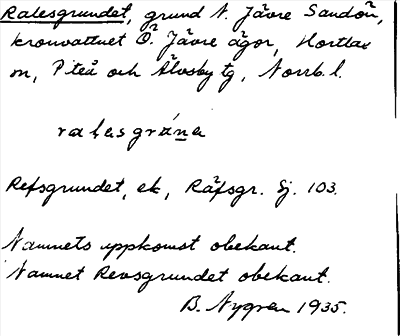 Ralesgrundet, grund N. Jävre Sandön,
kronvattnet Ö. Jävre ägor, Hortlax
sn, Piteå och Älvsby tg, Norrb. l.
ralesgrúna
Refsgrundet, ek, Räfsgr. Sj. 103.
Namnets uppkomst obekant.
Namnet Revsgrundet obekant.
B. Nygren 1935.